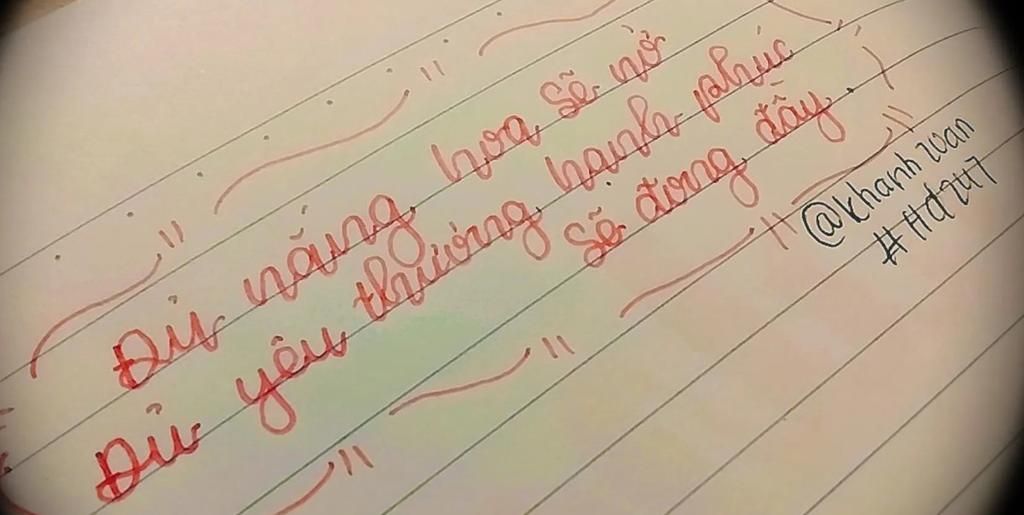 Đủ nắng hoa sẽ nở
Đủ yêu thương hạnh phúc
sẽ đong đầy.
@khanhwan